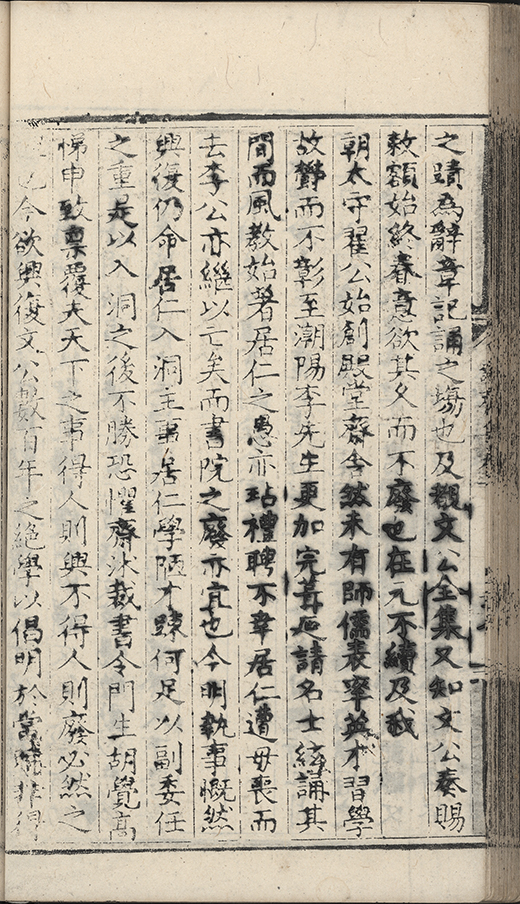 之蹟為辭章記誦之場也及觀文公全集又知文公奏賜
敕額始終眷意欲其久而不廢也在元不續及我
朝太守翟公始創殿堂齋舍然未有師儒表率英才習學
故鬱而不彰至潮陽李先生更加完葺延請名士絃誦其
間而風教始著居仁之愚亦玷禮聘不幸居仁遭毋喪而
去李公亦繼以亡矣而書院之廢亦宜也今明執事慨然
興復仍命居仁入洞主事居仁學陋才踈何足以副委任
之重是以入洞之後不勝恐懼齋沐裁書令門生胡覺高
悌申致稟覆夫天下之事得人則興不得人則廢必然之
也今欲興復文公數百年之絕學以倡明於當